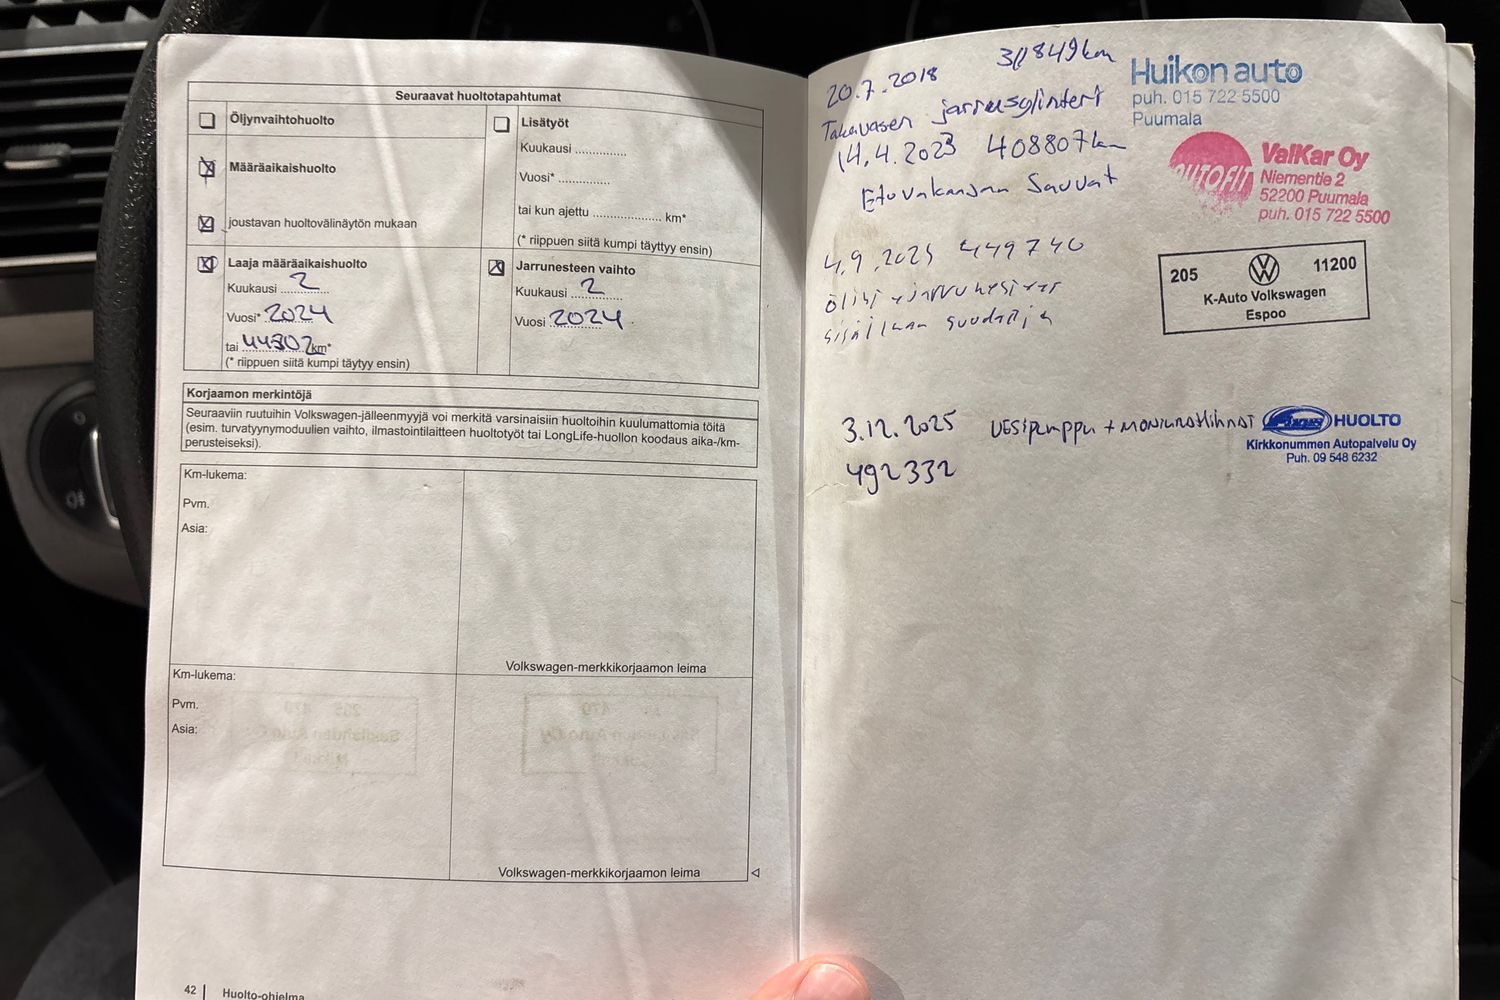 Seuraavat huoltotapahtumat
Öljynvaihtohuolto
Määräaikaishuolto
joustavan huoltovälinäytön mukaan
Lisätyöt
Kuukausi ..............
Vuosi* ..............
tai kun ajettu .................. km*
(* riippuen siitä kumpi täyttyy ensin)
Laaja määräaikaishuolto
Kuukausi 2
Vuosi* 2024
tai 44302 km*
(* riippuen siitä kumpi täytyy ensin)
Jarrunesteen vaihto
Kuukausi 2
Vuosi 2024
Korjaamon merkintöjä
Seuraaviin ruutuihin Volkswagen-jälleenmyyjä voi merkitä varsinaisiin huoltoihin kuulumattomia töitä
(esim. turvatyynymoduulien vaihto, ilmastointilaitteen huoltotyöt tai LongLife-huollon koodaus aika-/km-
perusteiseksi).
Km-lukema:
Pvm.
Asia:
Volkswagen-merkkikorjaamon leima
Km-lukema:
Pvm.
Asia:
Volkswagen-merkkikorjaamon leima
42 | Huolto-ohjelma
20.7.2018
Takavasen jarrusylinteri
Huikon auto
puh. 015 722 5500
Puumala
14.4.2023 408807 km
Etuvakaajan Sauvat
AUTOFIT
ValKar Oy
Niementie 2
52200 Puumala
puh. 015 722 5500
4.9.2025 449740
öljyt + jarrunesteet
sisäilman suodatin
205 11200
K-Auto Volkswagen
Espoo
3.12.2025 VESIPUMPPU + MONIURAHIHNAT
492332
HUOLTO
Kirkkonummen Autopalvelu Oy
Puh. 09 548 6232